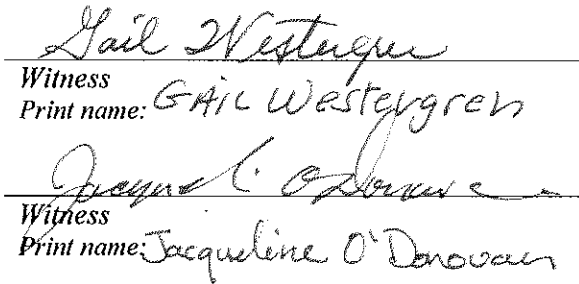 Gail Westergren
Witness
Print name: GAIL Westergren
Jacqueline O'Donovan
Witness
Print name: Jacqueline O'Donovan